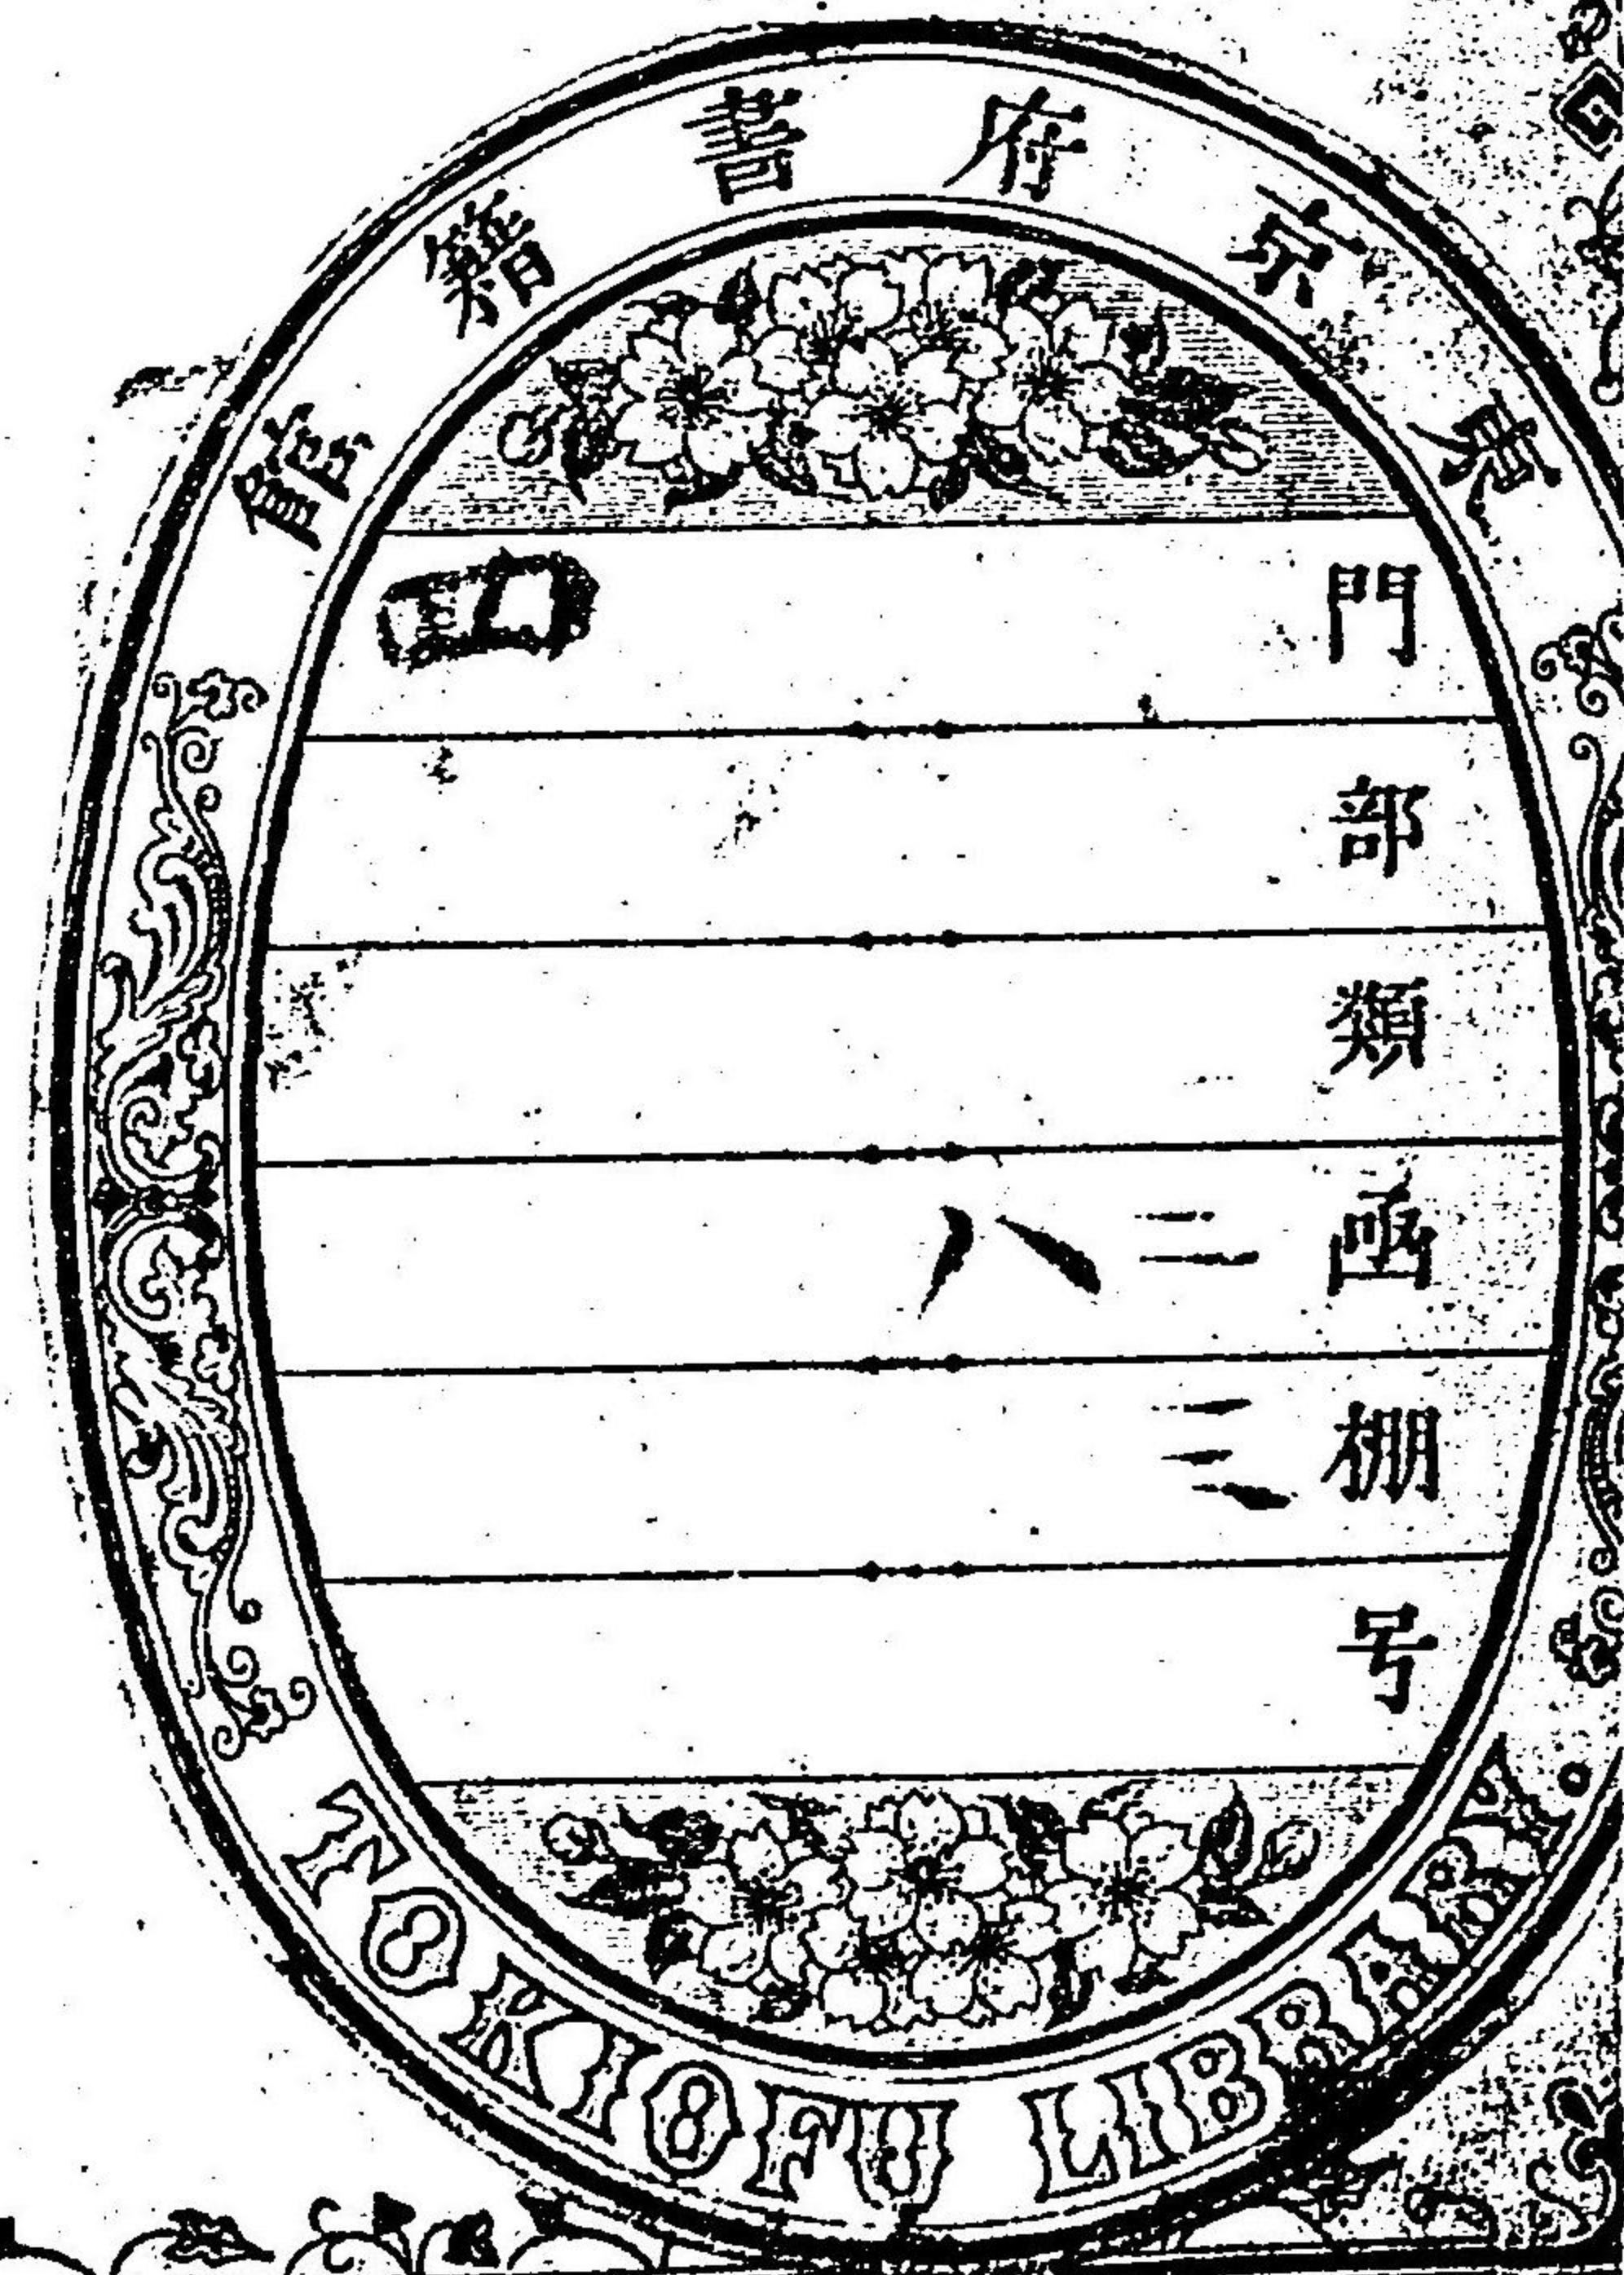 東京府書籍館
門
部
類
凾 二八
棚 三
号
TOKIOFU LIBRARY.